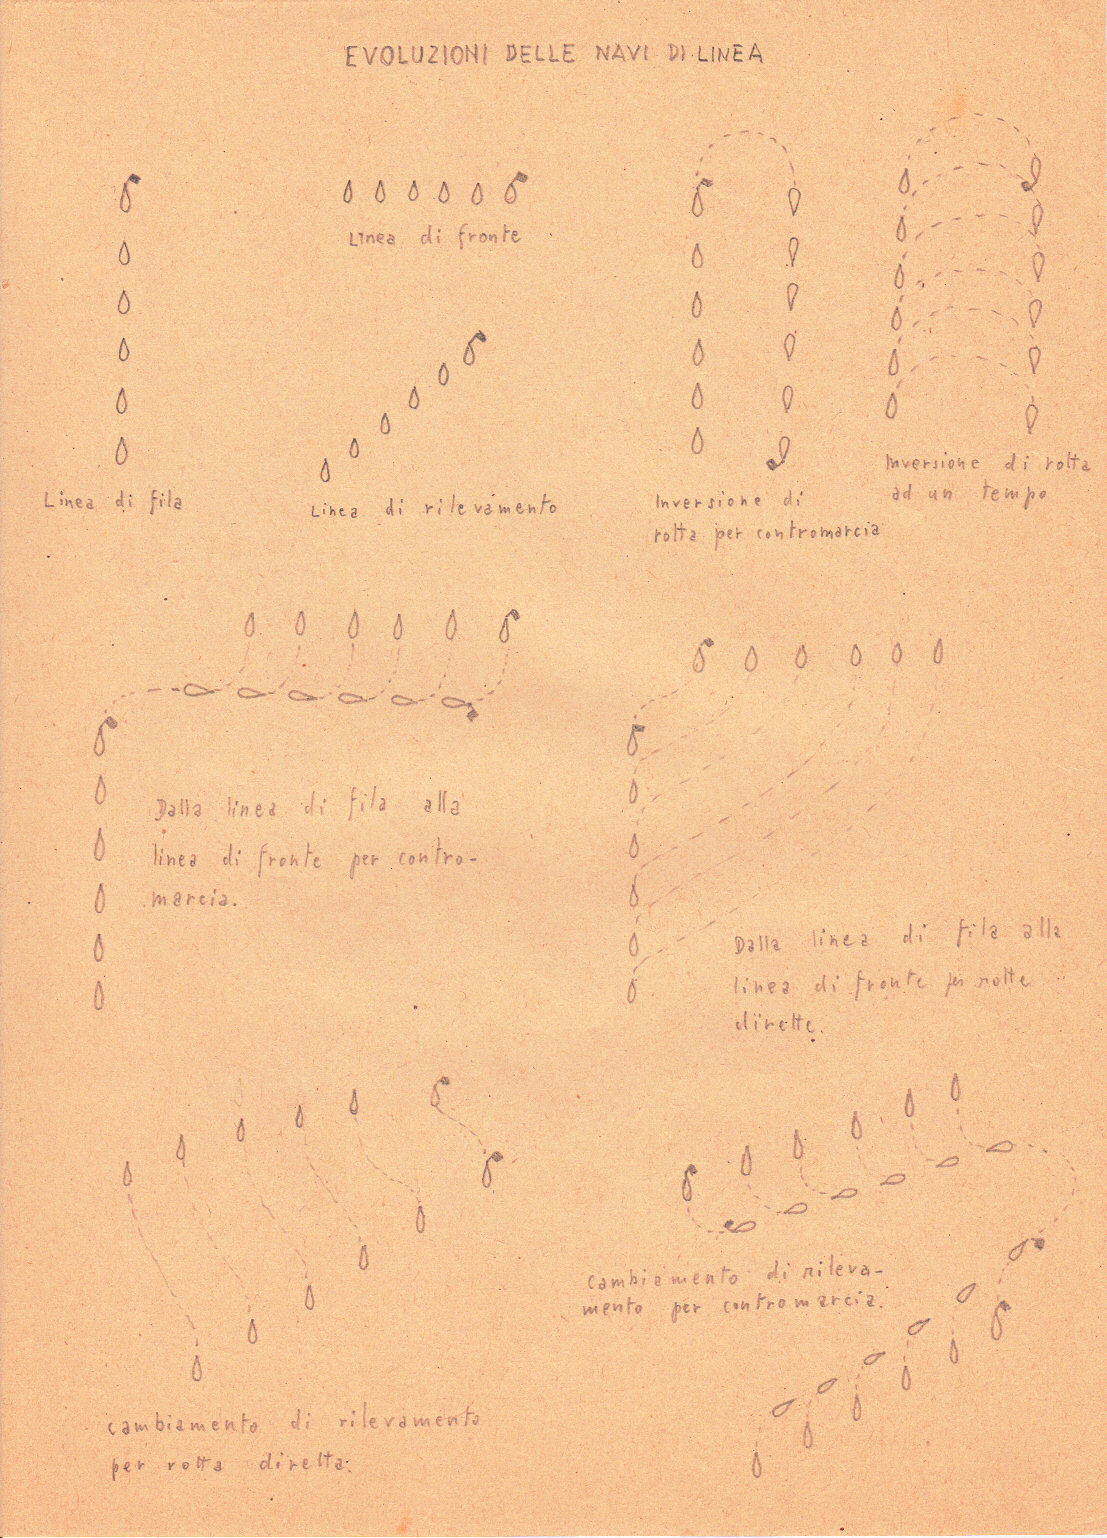 EVOLUZIONI DELLE NAVI DI LINEA
Linea di fila
Linea di fronte
Linea di rilevamento
Inversione di
rotta per contromarcia
Inversione di rotta
ad un tempo
Dalla linea di fila alla
linea di fronte per contro-
marcia.
Dalla linea di fila alla
linea di fronte per rotte
dirette.
cambiamento di rilevamento
per rotta diretta.
cambiamento di rileva-
mento per contromarcia.